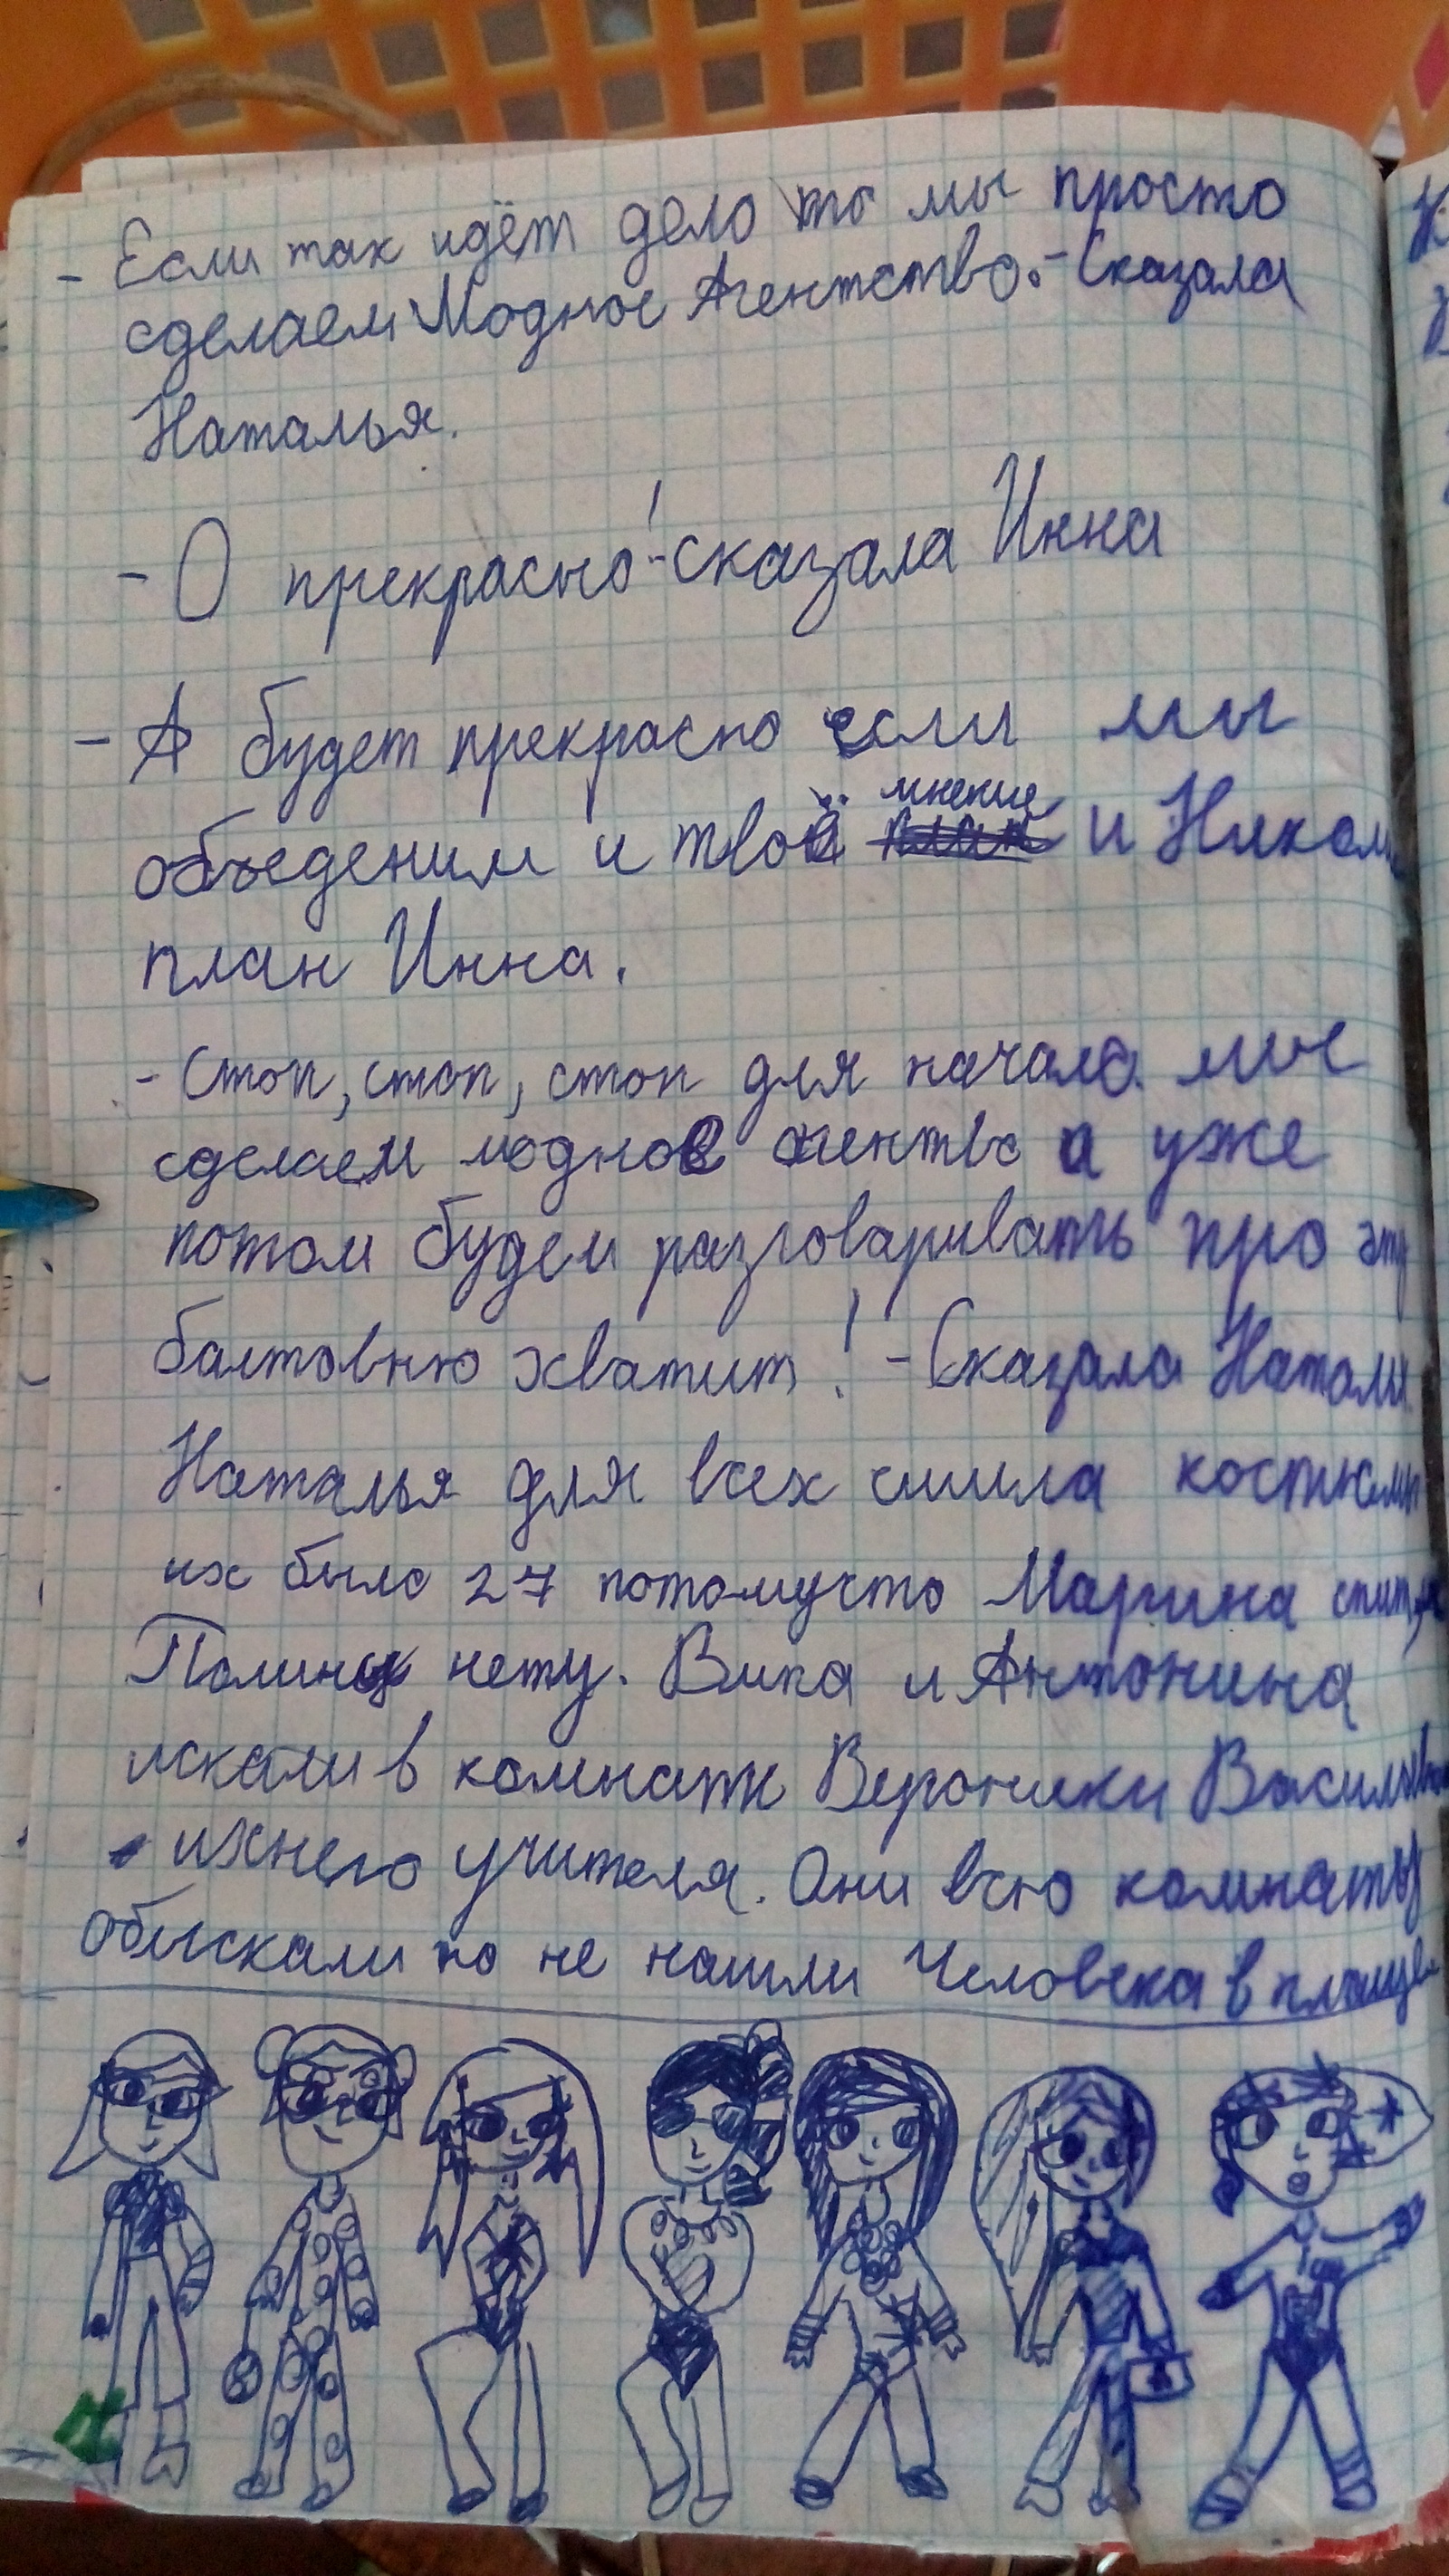 - Если так идёт дело то мы просто
сделаем Модное Агентство. - Сказала
Наталья.
- О прекрасно! - сказала Инна
- А будет прекрасно если мы
мнение
объеденим и твоё и
план Инна.
- Стоп, стоп, стоп для начала мы
сделаем модное агентво а уже
потом будем разговаривать про эту
балтовню хватит! - Сказала
Наталья для всех сшила костюмы
их было 27 потомучто Марина спит, а
Полины нету. Вика и Антонина
искали в комнате Вероники
- ихнего учителя. Они всю комнату
обыскали но не нашли Человека в плаще